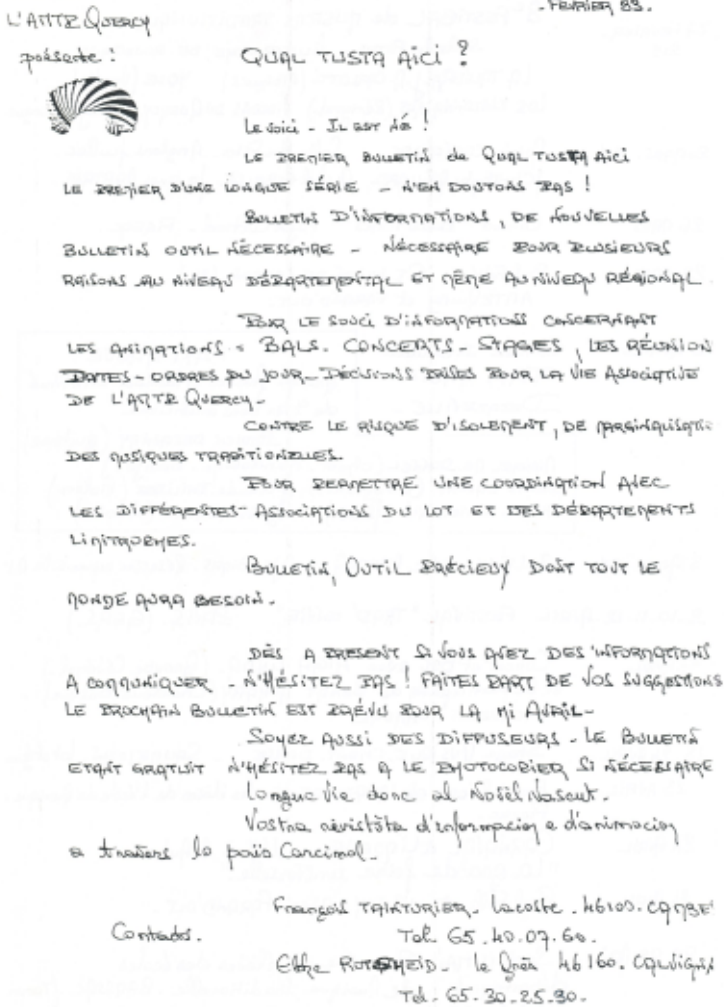 - FEVRIER 83.
L'AMTP Quercy
présente :
QUAL TUSTA AICI ?
Le voici - IL EST NÉ !
LE PREMIER BULLETIN de QUAL TUSTA AICI
LE PREMIER D'UNE LONGUE SÉRIE - N'EN DOUTONS PAS !
BULLETIN D'INFORMATIONS, DE NOUVELLES
BULLETIN OUTIL NÉCESSAIRE - NÉCESSAIRE POUR PLUSIEURS
RAISONS AU NIVEAU DÉPARTEMENTAL ET MÊME AU NIVEAU RÉGIONAL.
POUR LE SOUCI D'INFORMATIONS CONCERNANT
LES ANIMATIONS = BALS. CONCERTS - STAGES, LES RÉUNION
DATES - ORDRES DU JOUR - DÉCISIONS PRISES POUR LA VIE ASSOCIATIVE
DE L'AMTP QUERCY -
CONTRE LE RISQUE D'ISOLEMENT, DE MARGINALISATIO
DES MUSIQUES TRADITIONELLES.
POUR PERMETTRE UNE COORDINATION AVEC
LES DIFFÉRENTES ASSOCIATIONS DU LOT ET DES DÉPARTEMENTS
LIMITROPHES.
BULLETIN, OUTIL PRÉCIEUX DONT TOUT LE
MONDE AURA BESOIN.
DÈS A PRESENT SI VOUS AVEZ DES INFORMATIONS
A COMMUNIQUER - N'HÉSITEZ PAS ! FAITES PART DE VOS SUGGESTIONS
LE PROCHAIN BULLETIN EST PRÉVU POUR LA MI AVRIL -
SOYEZ AUSSI DES DIFFUSEURS - LE BULLETIN
ETANT GRATUIT N'HÉSITEZ PAS A LE PHOTOCOPIER SI NÉCESSAIRE
Longue Vie donc al Novel Nascut.
Vostra revistòta d'informacion e d'animacion
a travers lo païs Carcinol -
François TRINTURIER - Lacoste . 46100. CAMBE
Contacts.
Tel. 65.40.07.60.
46160. CALVIGNA
Tel - 65.30.25.30.